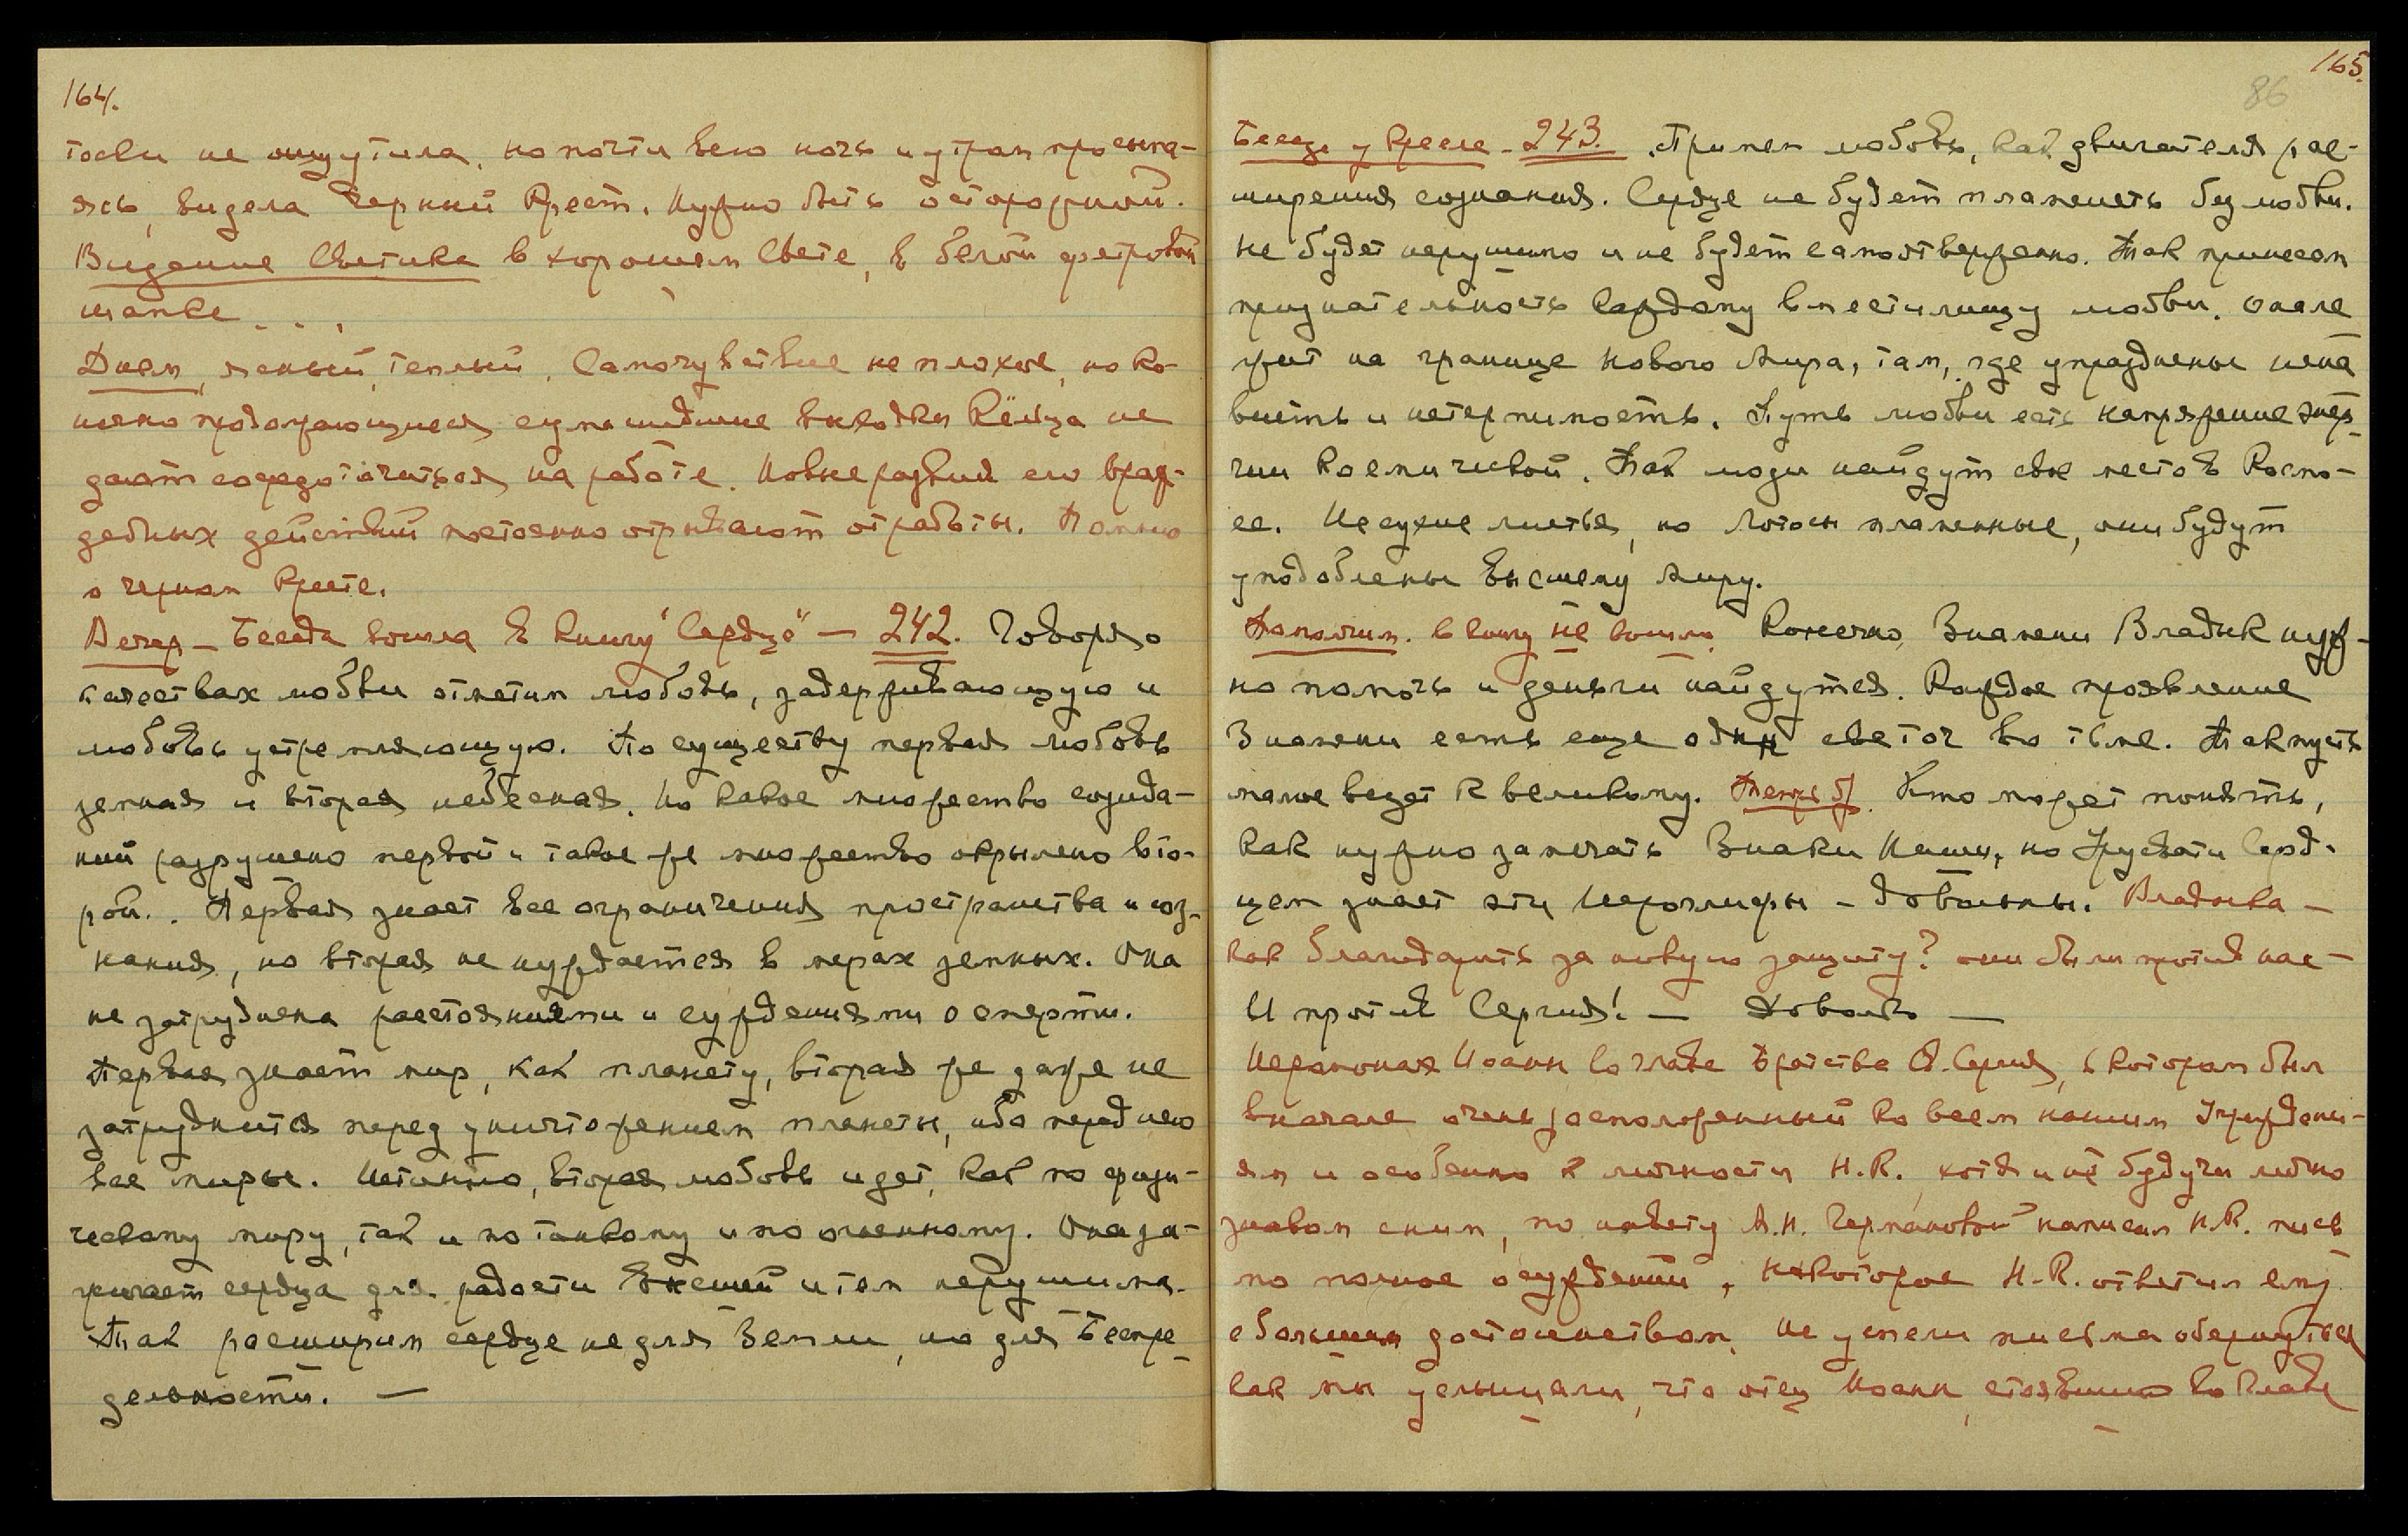 164.
тоски не ощутила, но почти всю ночь и утром просыпа-
ясь, видела черный Крест. Нужно быть осторожной.
Видение Светика в хорошем свете, в белой фетровой
шапке . . .
Днем, ясный, теплый. Самочувствие не плохое, но ко-
нечно продолжающиеся сумасшедшие выходки Кёльца не
дают сосредоточиться на работе. Новые радвии его враж-
дебных действий постоянно отрывают от работы. Помню
о черном Кресте.
Вечер – Беседа вошла в книгу "Сердце" — 242. Говоря о
качествах любви отметим любовь, задерживающую и
любовь устремляющую. По существу первая любовь
земная и вторая небесная. Но какое множество созида-
ний разрушено первой и такое же множество окрылено вто-
рой. Первая знает все ограничения пространства и соз-
нания, но вторая не нуждается в мерах земных. Она
не затруднена расстояниями и суждениями о смерти.
Первая знает мир, как планету, вторая же даже не
затруднится перед уничтожением планеты, ибо перед нею
все миры. Истинно, вторая любовь идет, как по физи-
ческому миру, так и по тонкому и по огненному. Она за-
жигает сердца для радости Высшей и тем нерушима.
Так расширим сердце не для Земли, но для Беспре-
дельности. —
165.
86
Беседа у Кресле – 243. Примем любовь, как двигателя рас-
ширения сознания. Сердце не будет пламенеть без любви.
не будет нерушимо и не будет самоотверженно. Так принесем
признательность каждому вместилищу любви. Оно ле-
жит на границе Нового Мира, там, где упразднены нена-
висть и нетерпимость. Путь любви есть напряжение энер-
гии космической. Так люди найдут свое место в Космо-
се. Не сухие листья, но Лотосы пламенные, они будут
уподоблены Высшему Миру.
Пополним. в книгу не вошло. Конечно, Знамени Владык нуж-
но помочь и деньги найдутся. Каждое проявление
Знамени есть еще один светоч во тьме. Так пусть
малое ведет к великому. Кто может понять,
как нужно замечать Знаки Наши, но Урусвати Серд-
цем знает эти Иероглифы – довольны. Владыка —
как благодарить за новую защиту? они были против нас —
И против Сергия! — Довольно —
Иеромонах Иоанн во главе Братства Св. Сергия, в котором был
вначале очень расположенный ко всем нашим Учреждени-
ям и особенно к личности Н.К., хотя и не будучи лично
знаком с ним, по навету А.Н. Чермановой написал Н.К. пись-
мо полное осуждений, на которое Н.К. ответил ему
с большим достоинством. Не успели письма обернуться
как мы услышали, что отец Иоанн, стоявший во Главе